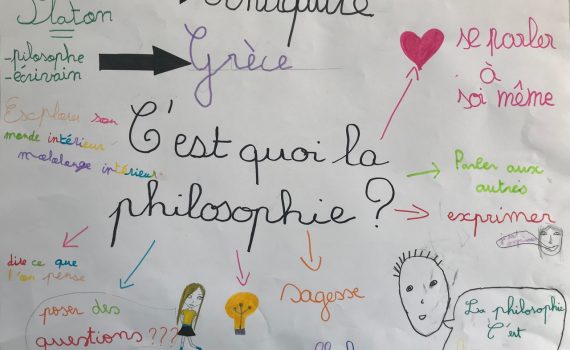 Platon
-pilosophe
-écrivain
Grèce
se parler
à
soi même
Explorer son
monde intérieur
intérieur
C'est quoi la
philosophie ?
Parler aux
autres
exprimer
dire ce que
l'on pense
poser des
questions ???
sagesse
La philosophie
C'est